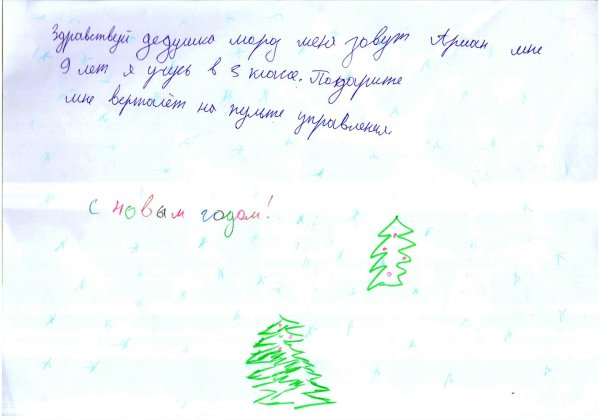 Здравствуй дедушка мороз меня зовут Арман мне
9 лет я учусь в 3 классе. Подарите
мне верталёт на пульте управления
С новым годом!